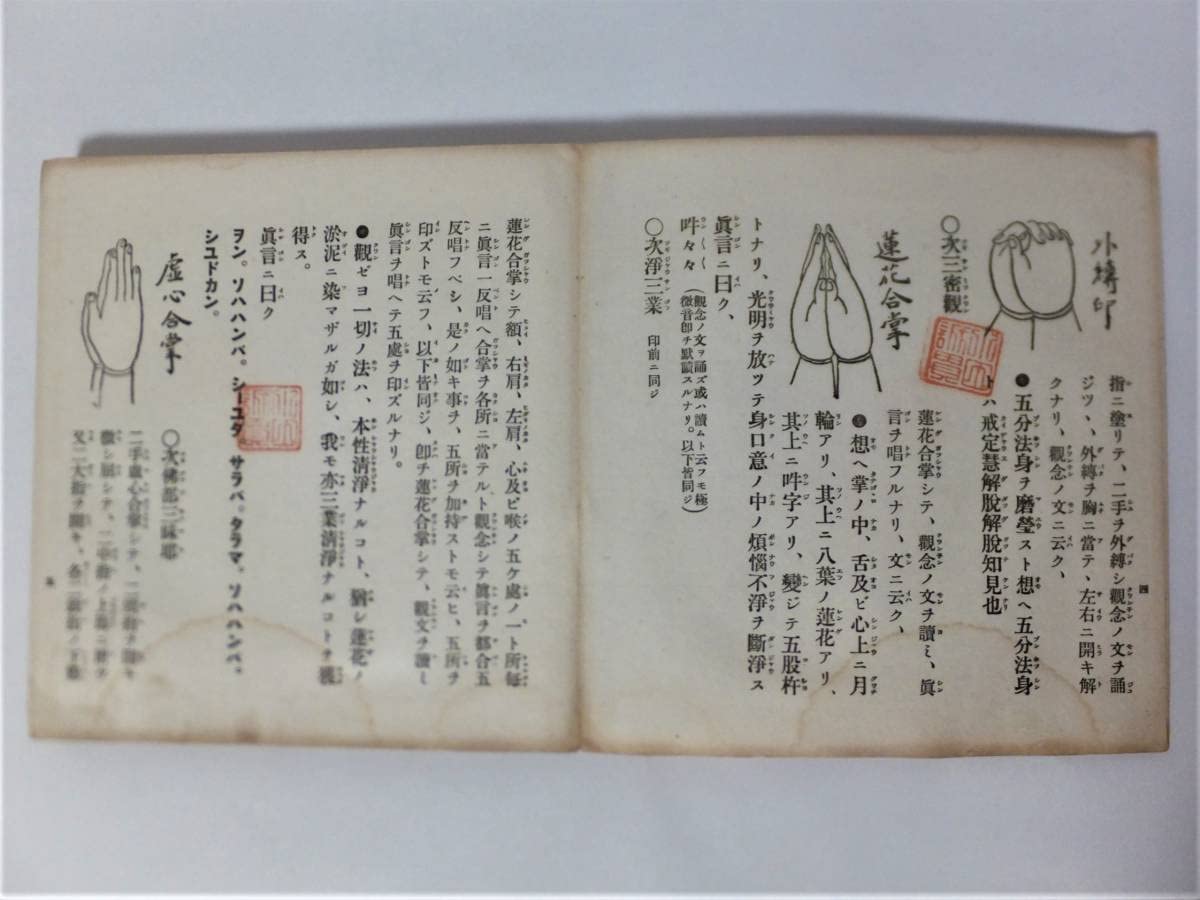 四
小縛印
指ニ塗リテ、二手ヲ外縛シ觀念ノ文ヲ誦
ジツヽ、外縛ヲ胸ニ當テ、左右ニ開キ解
クナリ、觀念ノ文ニ云ク、
●五分法身ヲ磨瑩スト想ヘ五分法身
トハ戒定慧解脫解脫知見也
〇次三密觀
蓮花合掌
蓮花合掌シテ、觀念ノ文ヲ讀ミ、眞
言ヲ唱フルナリ、文ニ云ク、
●想ヘ掌ノ中、舌及ビ心上ニ月
輪アリ、其上ニ八葉ノ蓮花アリ、
其上ニ吽字アリ、變ジテ五股杵
トナリ、光明ヲ放ツテ身口意ノ中ノ煩惱不淨ヲ斷淨ス
眞言ニ曰ク、
吽々々(觀念ノ文ヲ誦ズ或ハ讀ムト云フモ極
微音卽チ默讀スルナリ。以下皆同ジ)
〇次淨三業 印前ニ同ジ
蓮花合掌シテ額、右肩、左肩、心及ビ喉ノ五ケ處ノ一ト所每
ニ眞言一反唱ヘ合掌ヲ各所ニ當テルト觀念シテ眞言ヲ都合五
反唱フベシ、是ノ如キ事ヲ、五所ヲ加持ストモ云ヒ、五所ヲ
印ズトモ云フ、以下皆同ジ、卽チ蓮花合掌シテ、觀文ヲ讀ミ
眞言ヲ唱ヘテ五處ヲ印ズルナリ。
●觀ゼヨ一切ノ法ハ、本性淸淨ナルコト、猶シ蓮花ノ
淤泥ニ染マザルガ如シ、我モ亦三業淸淨ナルコトヲ獲
得ス。
眞言ニ曰ク
ヲン。ソハハンバ。シユダ。サラバ。タラマ。ソハハンバ。
シユドカン。
虛心合掌
〇次佛部三昧耶
二手虛心合掌シテ、二頭指ヲ
微シ屈シテ、二中指ノ上節ニ
又二大指ヲ開キ、各二頭指ノ下